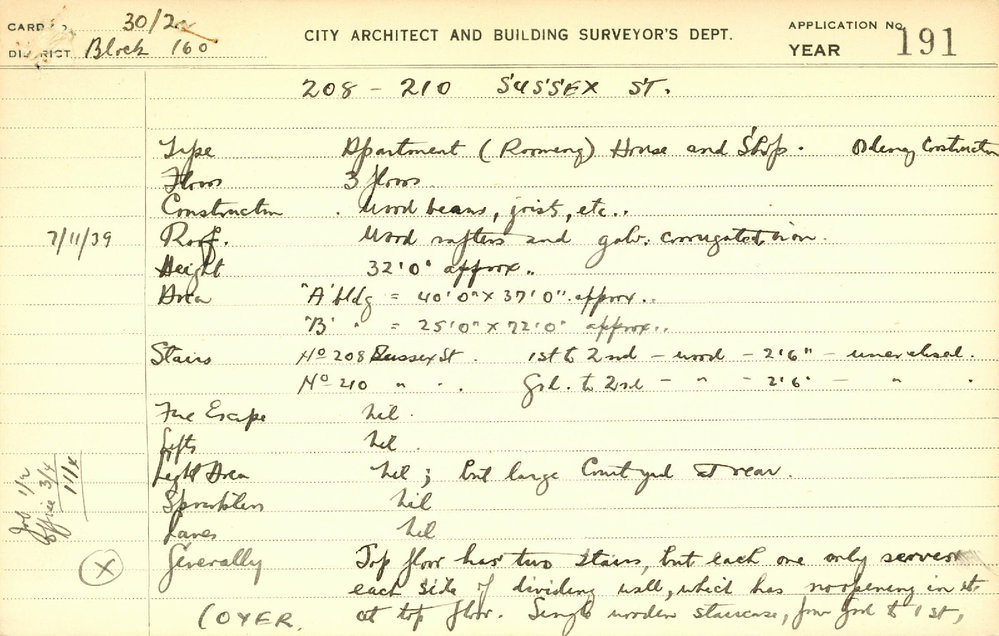 CARD No. 30/2a
CITY ARCHITECT AND BUILDING SURVEYOR'S DEPT.
APPLICATION No. 191
DISTRICT Block 160
YEAR
208 - 210 SUSSEX ST.
Type Apartment (Rooming) House and Shop. Construction
Floors 3 floors.
Construction . Wood beams, joist, etc..
7/11/39 Roof. Wood rafters and galv. corrugated iron.
Height 32'0" approx.
Area "A" bldg = 40'0" x 37'0" approx..
"B" " = 25'0" x 72'0" approx..
Stairs No 208 Sussex St. 1st to 2nd - wood - 2'6" -
No 210 " . . Grd. to 2nd - " - 2'6" - " .
Fire Escape Nil.
Lifts Nil.
Light Area Nil; but large Courtyard at rear.
Sprinklers Nil
Lanes Nil
Job 1/2
Office 3/4
1 1/4
(X)
Generally Top floor has two stairs, but each one only serves
each side of dividing wall, which has no opening in it
(OVER. at top floor. Single wooden staircase, from grd to 1st,